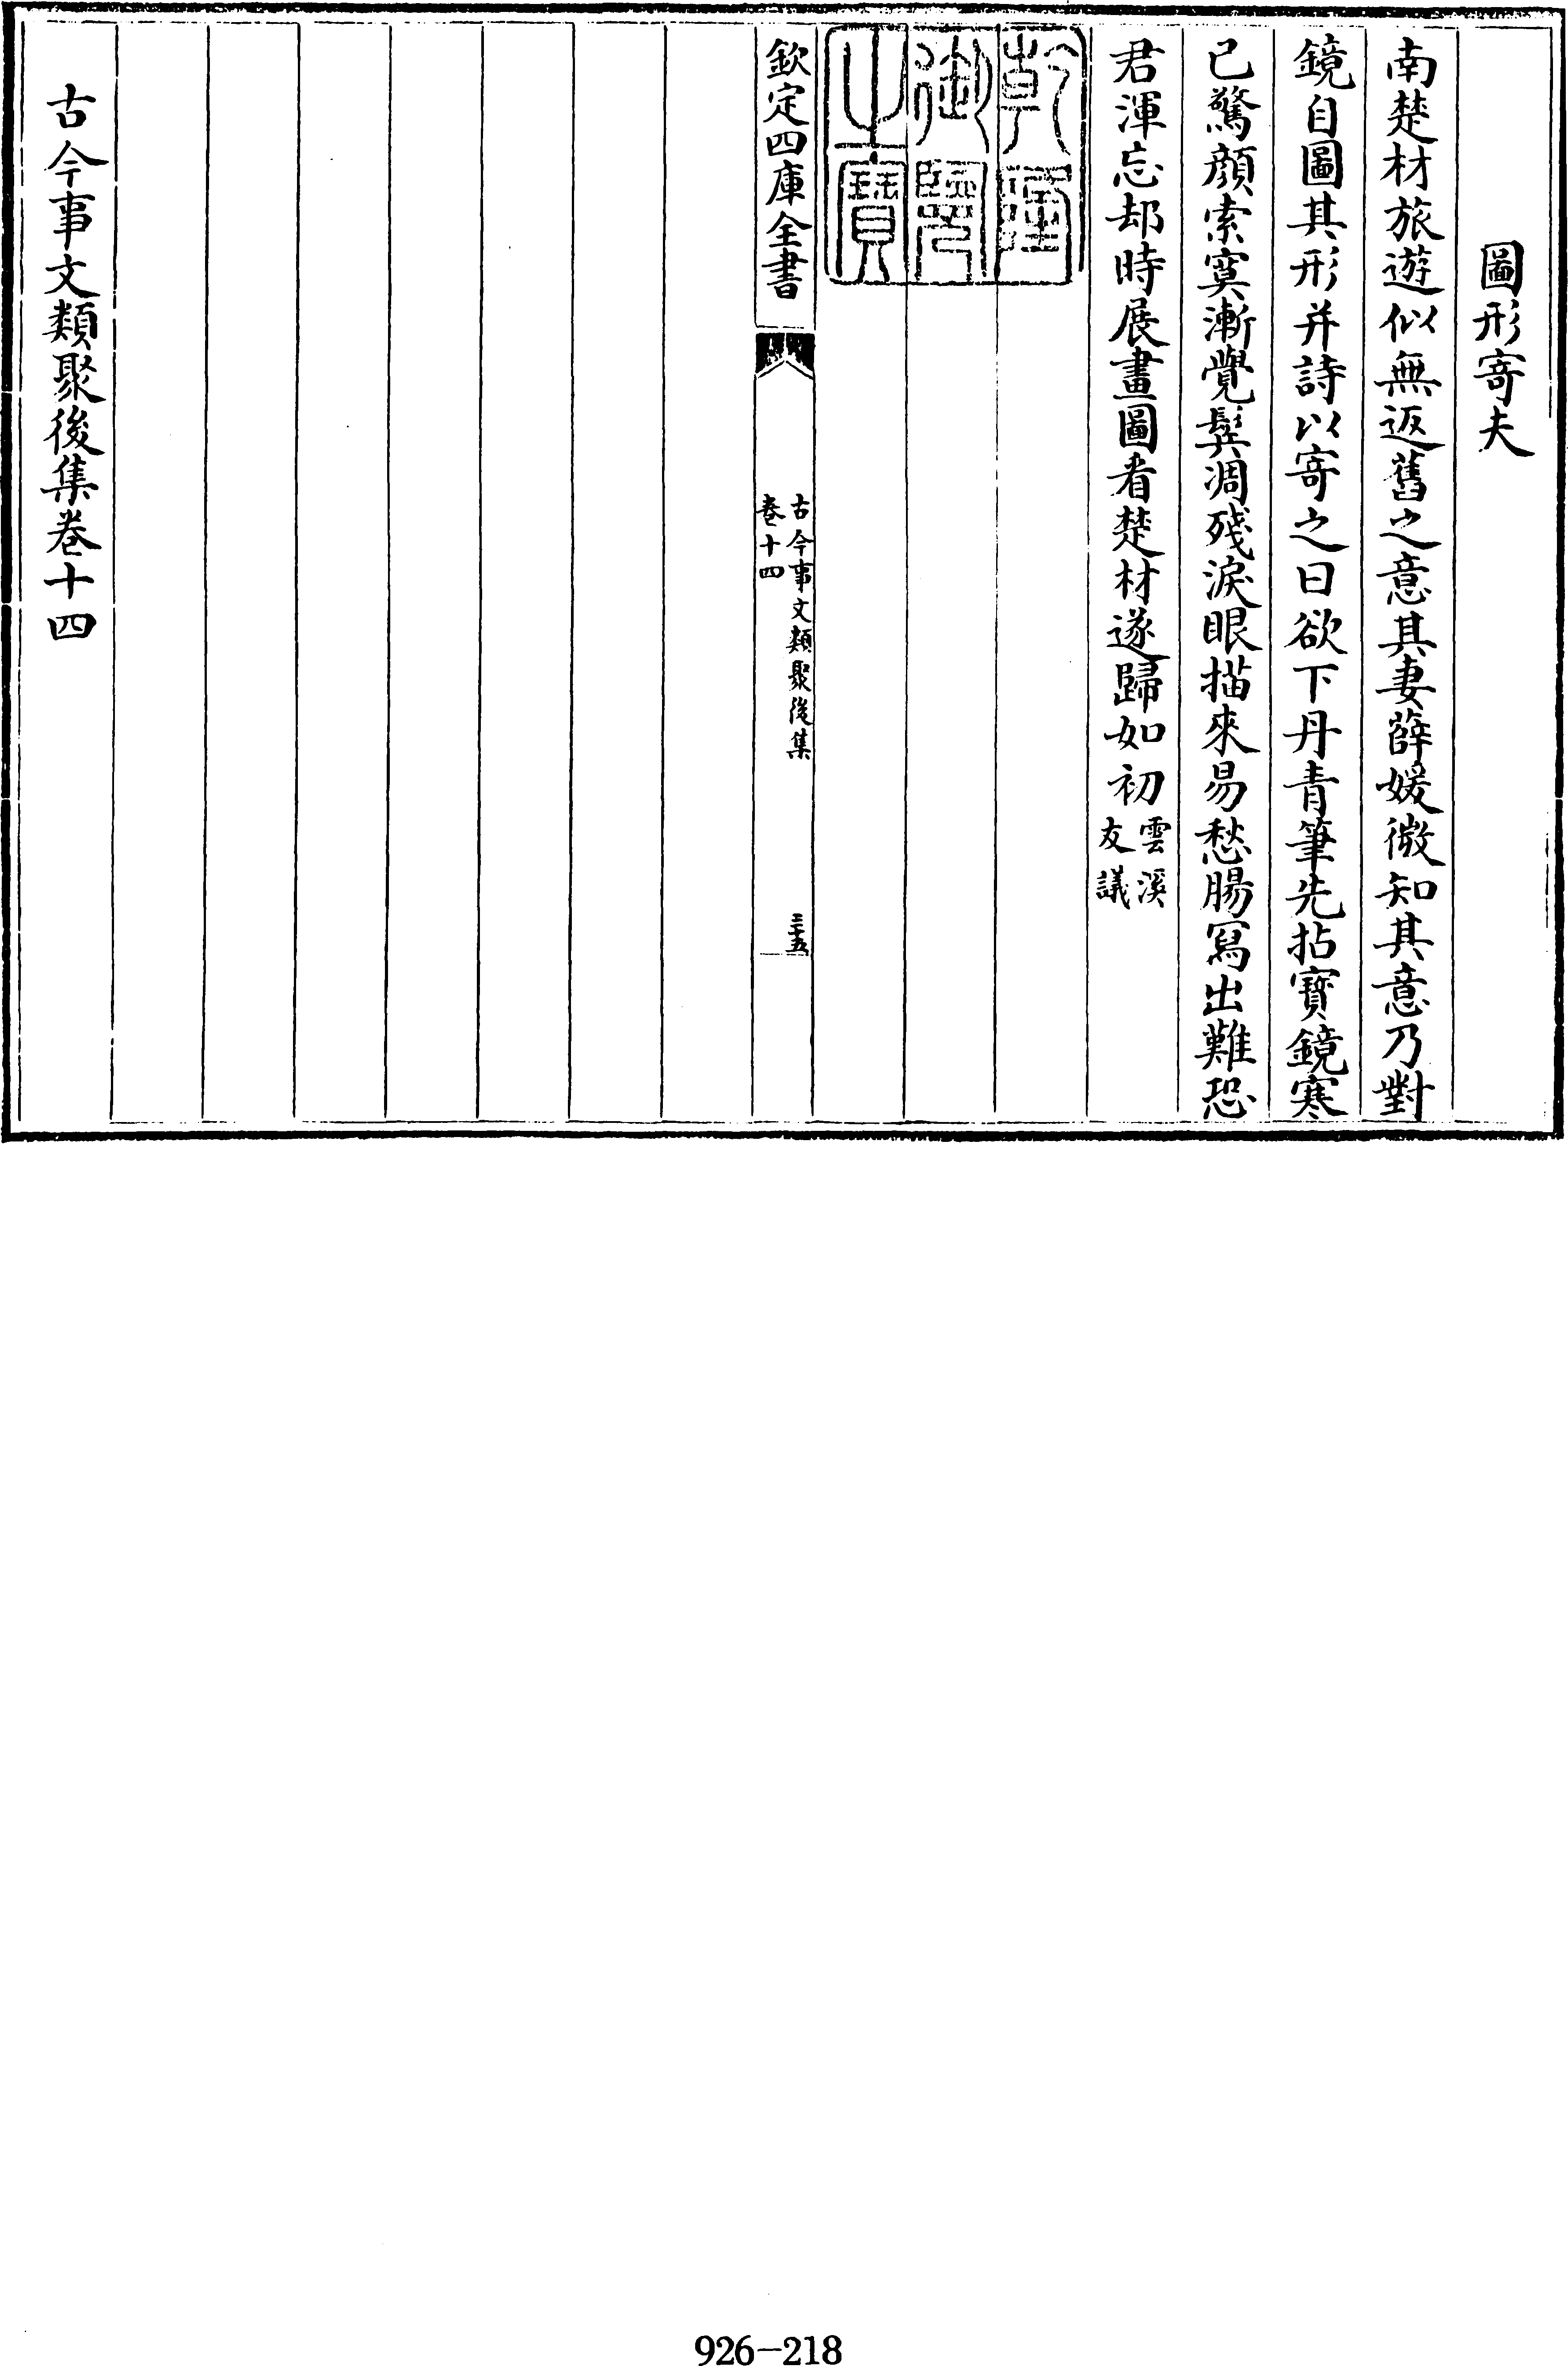 圖形寄夫
南楚材旅遊似無返舊之意其妻薛媛微知其意乃對
鏡自圖其形并詩以寄之曰欲下丹青筆先拈寶鏡寒
已驚顔索寞漸覺鬂凋殘淚眼描來易愁腸寫出難恐
君渾忘却時展畫圖看楚材遂歸如初雲溪
友議
乾隆
御覽
之寶
欽定四庫全書
古今事文類聚後集
卷十四
三十五
古今事文類聚後集卷十四
926-218